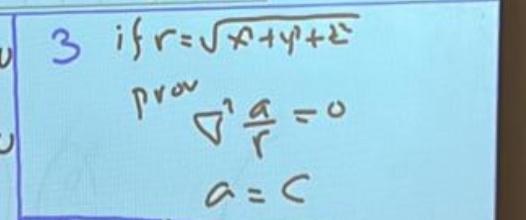 3 if r = √x²+y²+z²
prov
∇² a/r = 0
a = c